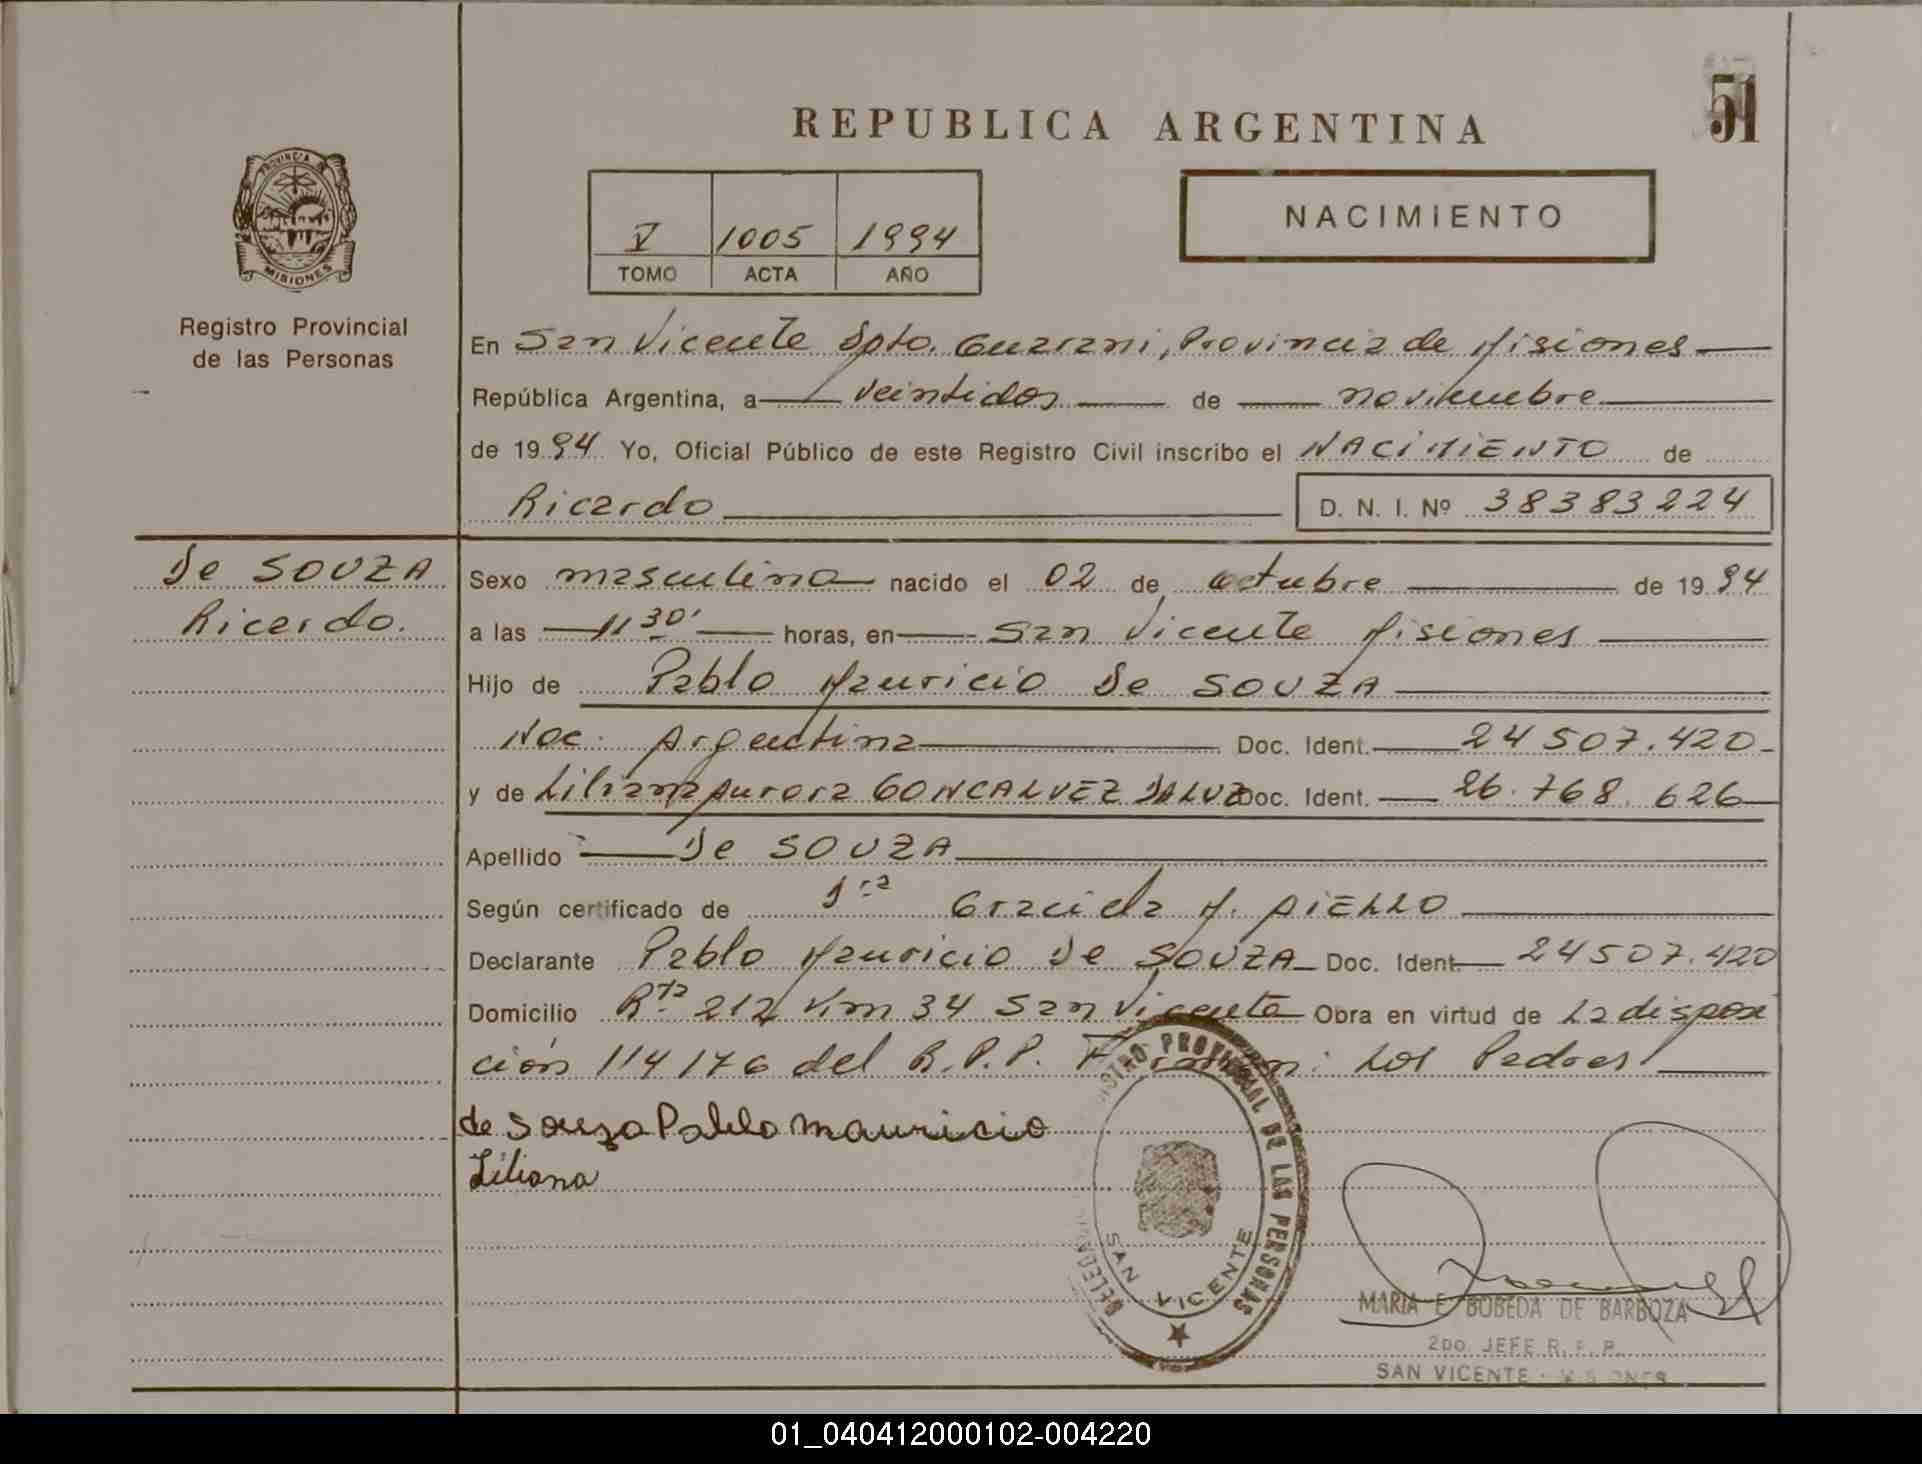 51
REPUBLICA ARGENTINA
PROVINCIA DE
MISIONES
Registro Provincial
de las Personas
V 1005 1994
TOMO ACTA AÑO
NACIMIENTO
En San Vicente Dpto. Guarani, Provincia de Misiones
República Argentina, a veintidos de noviembre
de 1994 Yo, Oficial Público de este Registro Civil inscribo el NACIMIENTO de
Ricardo D. N. I. Nº 38383224
De SOUZA
Ricardo.
Sexo masculino nacido el 02 de octubre de 1994
a las 11 30' horas, en San Vicente Misiones
Hijo de Pablo Mauricio De SOUZA
Nac. Argentina Doc. Ident. 24507.420
y de Liliana Aurora GONCALVEZ DA LUZ Doc. Ident. 26.768.626
Apellido De SOUZA
Según certificado de Graciela M. AIELLO
Declarante Pablo Mauricio De SOUZA Doc. Ident. 24507.420
Domicilio Rta 212 Km 34 San Vicente Obra en virtud de La disposi
ción 114/76 del R.P.P. Firman: Los Padres
de Souza Pablo Mauricio
Liliana
REGISTRO PROVINCIAL DE LAS PERSONAS
SAN VICENTE
MARIA E. BOBEDA DE BARBOZA
2DO. JEFE R. P. P.
SAN VICENTE - MISIONES
01_040412000102-004220